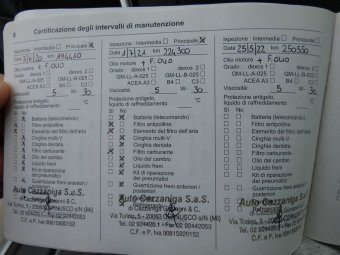 Certificazione degli intervalli di manutenzione
Ispezione: Intermedia Principale
Data 3/6/20 km 196410
Olio motore + F. OLIO
Grado: dexos 1 dexos 2
GM-LL-A-025 GM-LL-B-025
ACEA A3 B4 C3
Viscosità: 5 W- 30
Protezione antigelo
liquido di raffreddamento °C
Batteria (telecomando)
Filtro antipolline
Elemento del filtro dell'aria
Cinghia multi-V
Cinghia dentata
Filtro carburante
Olio del cambio
Liquido freni
Kit di riparazione
dei pneumatici
Guarnizioni freni anteriori /
posteriori
Auto Cazzaniga S.a.S.
Ispezione: Intermedia Principale
Data 1/7/21 km 224300
Olio motore + F. OLIO
Grado: dexos 1 dexos 2
GM-LL-A-025 GM-LL-B-025
ACEA A3 B4 C3
Viscosità: 5 W- 30
Protezione antigelo
liquido di raffreddamento °C
Batteria (telecomando)
Filtro antipolline
Elemento del filtro dell'aria
Cinghia multi-V
Cinghia dentata
Filtro carburante
Olio del cambio
Liquido freni
Kit di riparazione
dei pneumatici
Guarnizioni freni anteriori /
posteriori
Auto Cazzaniga S.a.S.
di Cazzaniga & C.
Ispezione: Intermedia Principale
Data 25/5/22 km 250550
Olio motore + F. OLIO
Grado: dexos 1 dexos 2
GM-LL-A-025 GM-LL-B-025
ACEA A3 B4 C3
Viscosità: 5 W- 30
Protezione antigelo
liquido di raffreddamento °C
Batteria (telecomando)
Filtro antipolline
Elemento del filtro dell'aria
Cinghia multi-V
Cinghia dentata
Filtro carburante
Olio del cambio
Liquido freni
Kit di riparazione
dei pneumatici
Guarnizioni freni
Auto Cazzaniga S.a.S.